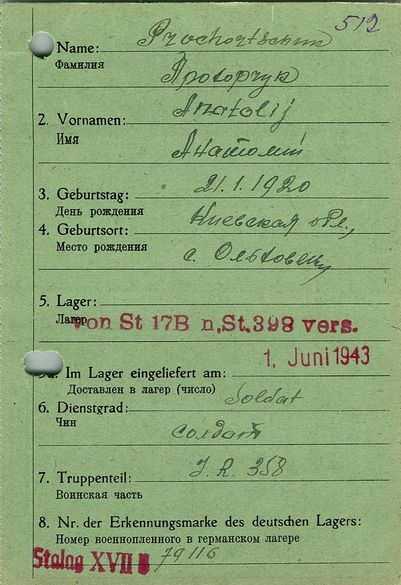 512
Name: Prochortschuk
Фамилия
Anatolij
2. Vornamen:
Имя
Анатолий
21.1.1920
3. Geburtstag:
День рождения
Киевская обл.,
4. Geburtsort:
Место рождения
с.
5. Lager:
Лагерь
von St 17B n. St. 398 vers.
1. Juni 1943
5a. Im Lager eingeliefert am:
Доставлен в лагерь (число)
Soldat
6. Dienstgrad:
Чин
солдат
J. R. 358
7. Truppenteil:
Воинская часть
8. Nr. der Erkennungsmarke des deutschen Lagers:
Номер военнопленного в германском лагере
Stalag XVII B 79116